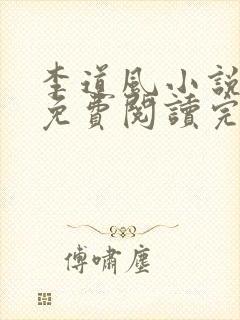 李道風小說
免費閱讀完
傅嘯塵